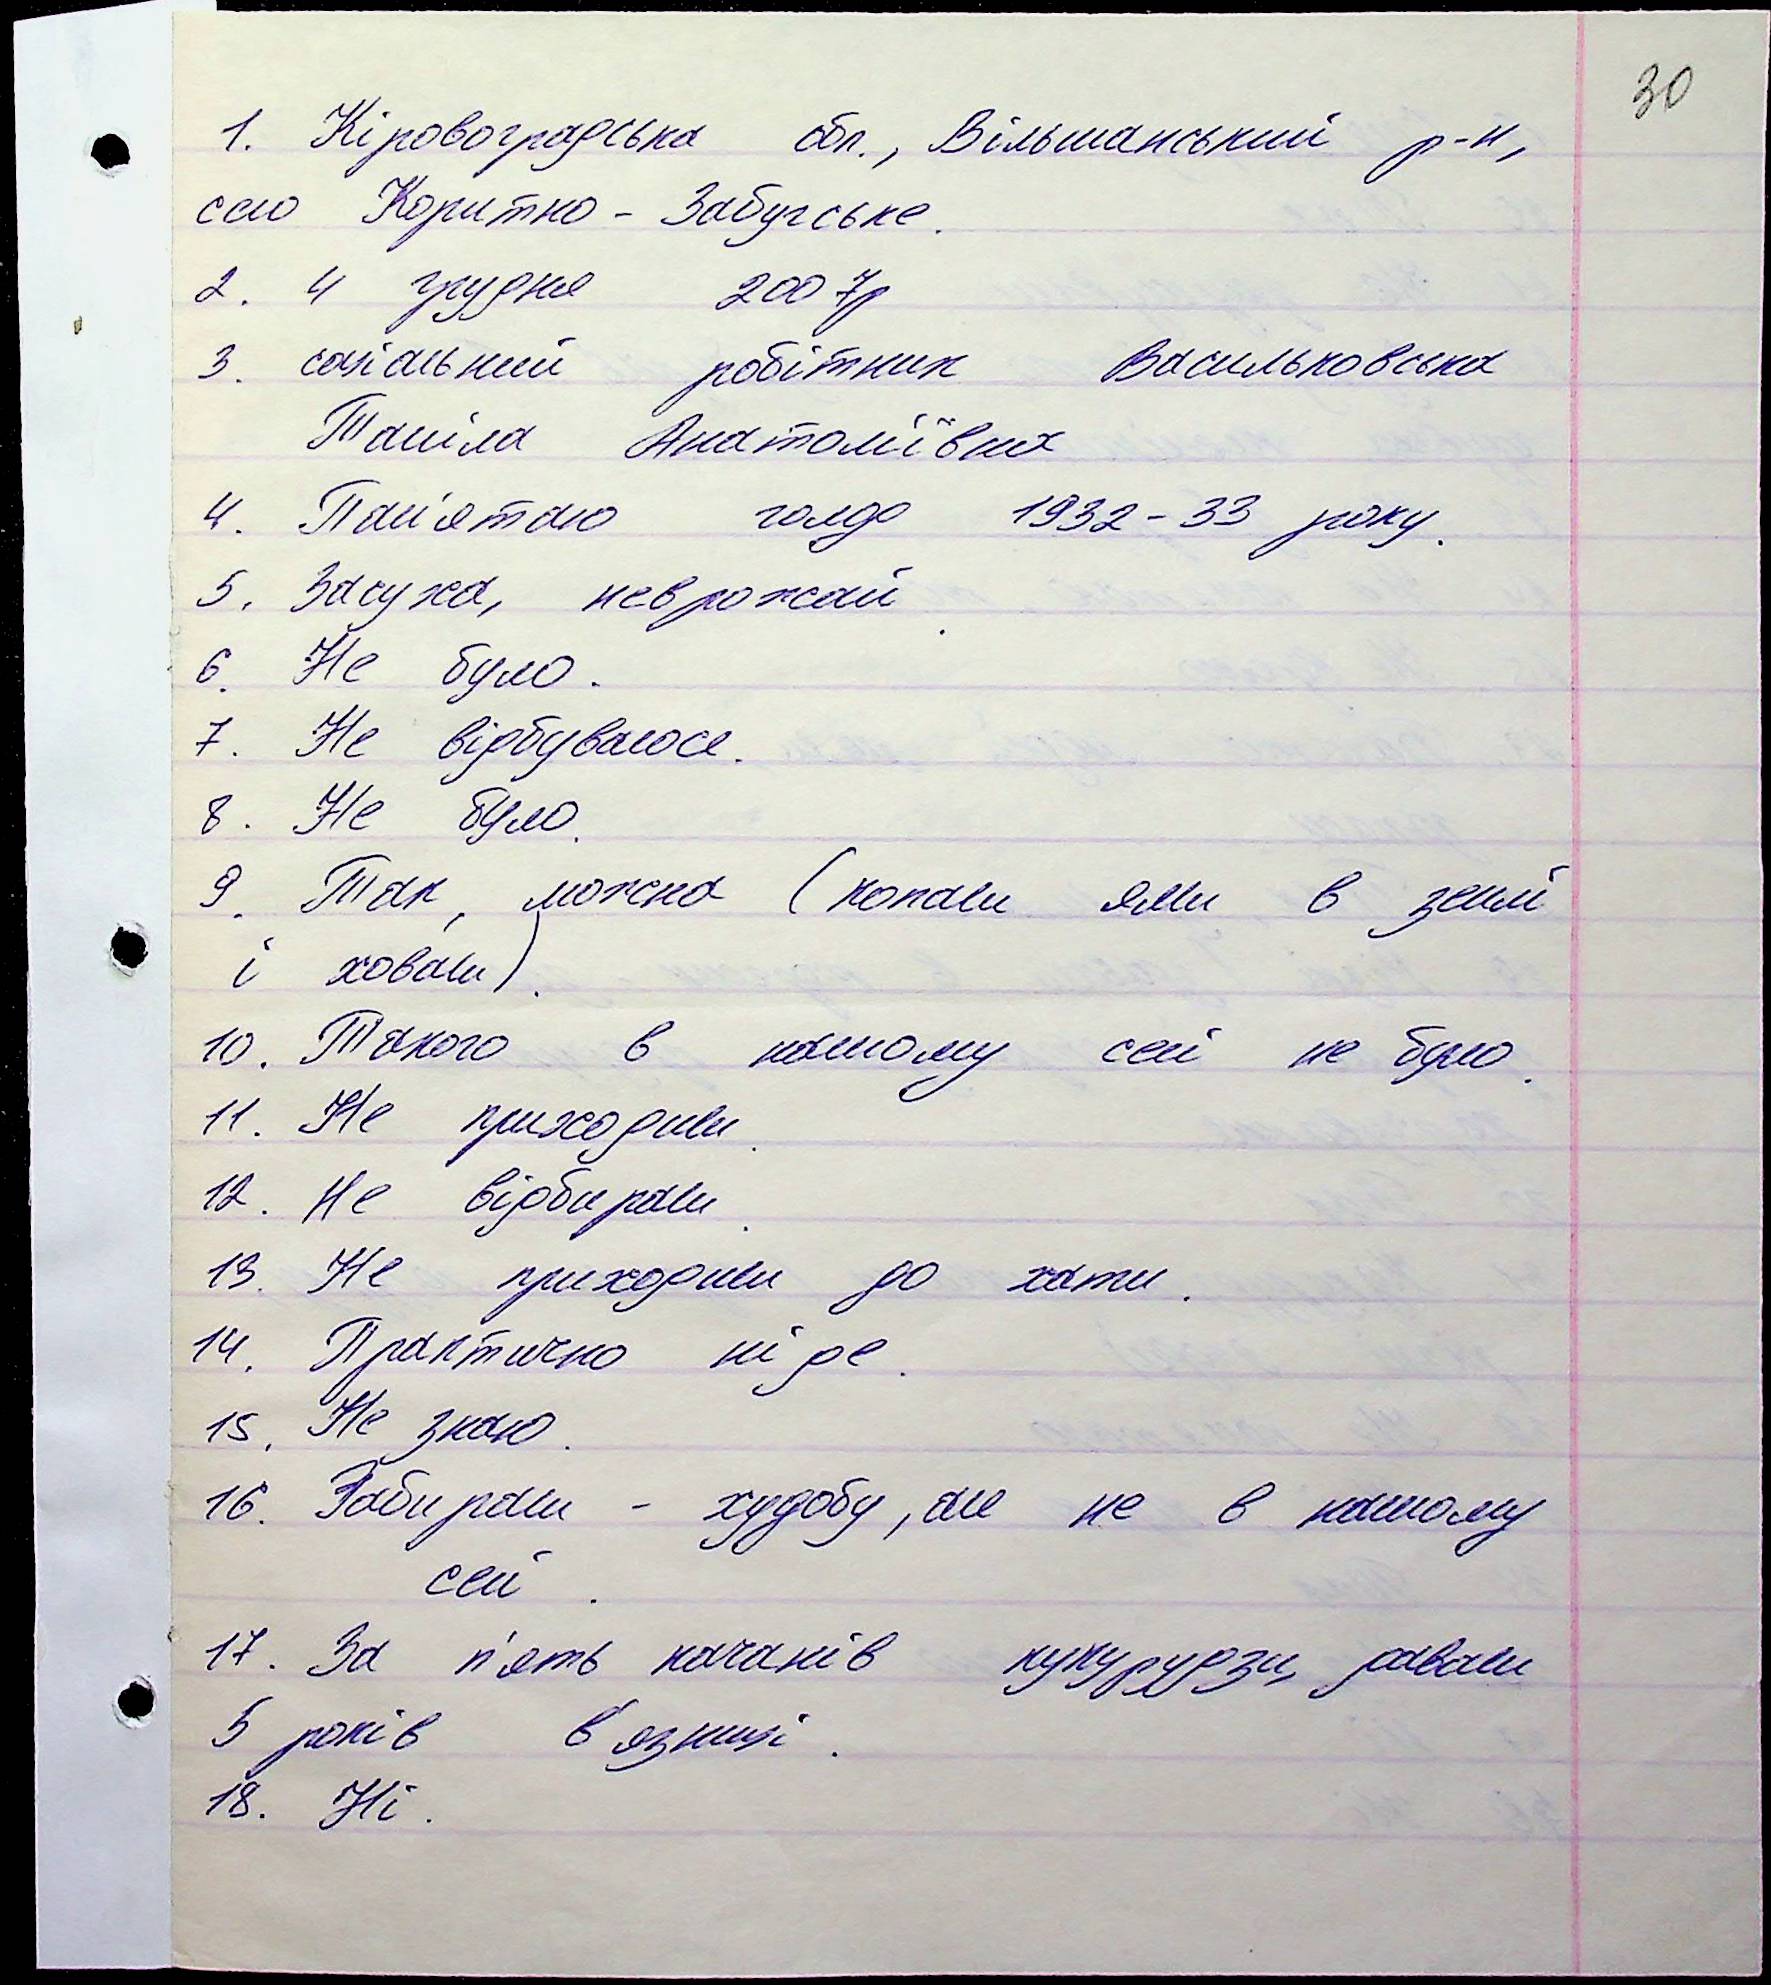 30
1. Кіровоградська обл., Вільшанський р-н,
село Коритно - Забугське.
2. 4 грудня 2007р
3. соціальний робітник Васильковська
Таміла Анатоліївна
4. Пам'ятаю голод 1932-33 року.
5. Засуха, неврожай.
6. Не було.
7. Не відбувалося.
8. Не було.
9. Так, можна (копали ями в землі
і ховали).
10. Такого в нашому селі не було.
11. Не приходили.
12. Не відбирали.
13. Не приходили до хати.
14. Практично ніде.
15. Не знаю.
16. Забирали - худобу, але не в нашому
селі.
17. За п'ять качанів кукурудзи, давали
5 років в'язниці.
18. Ні.